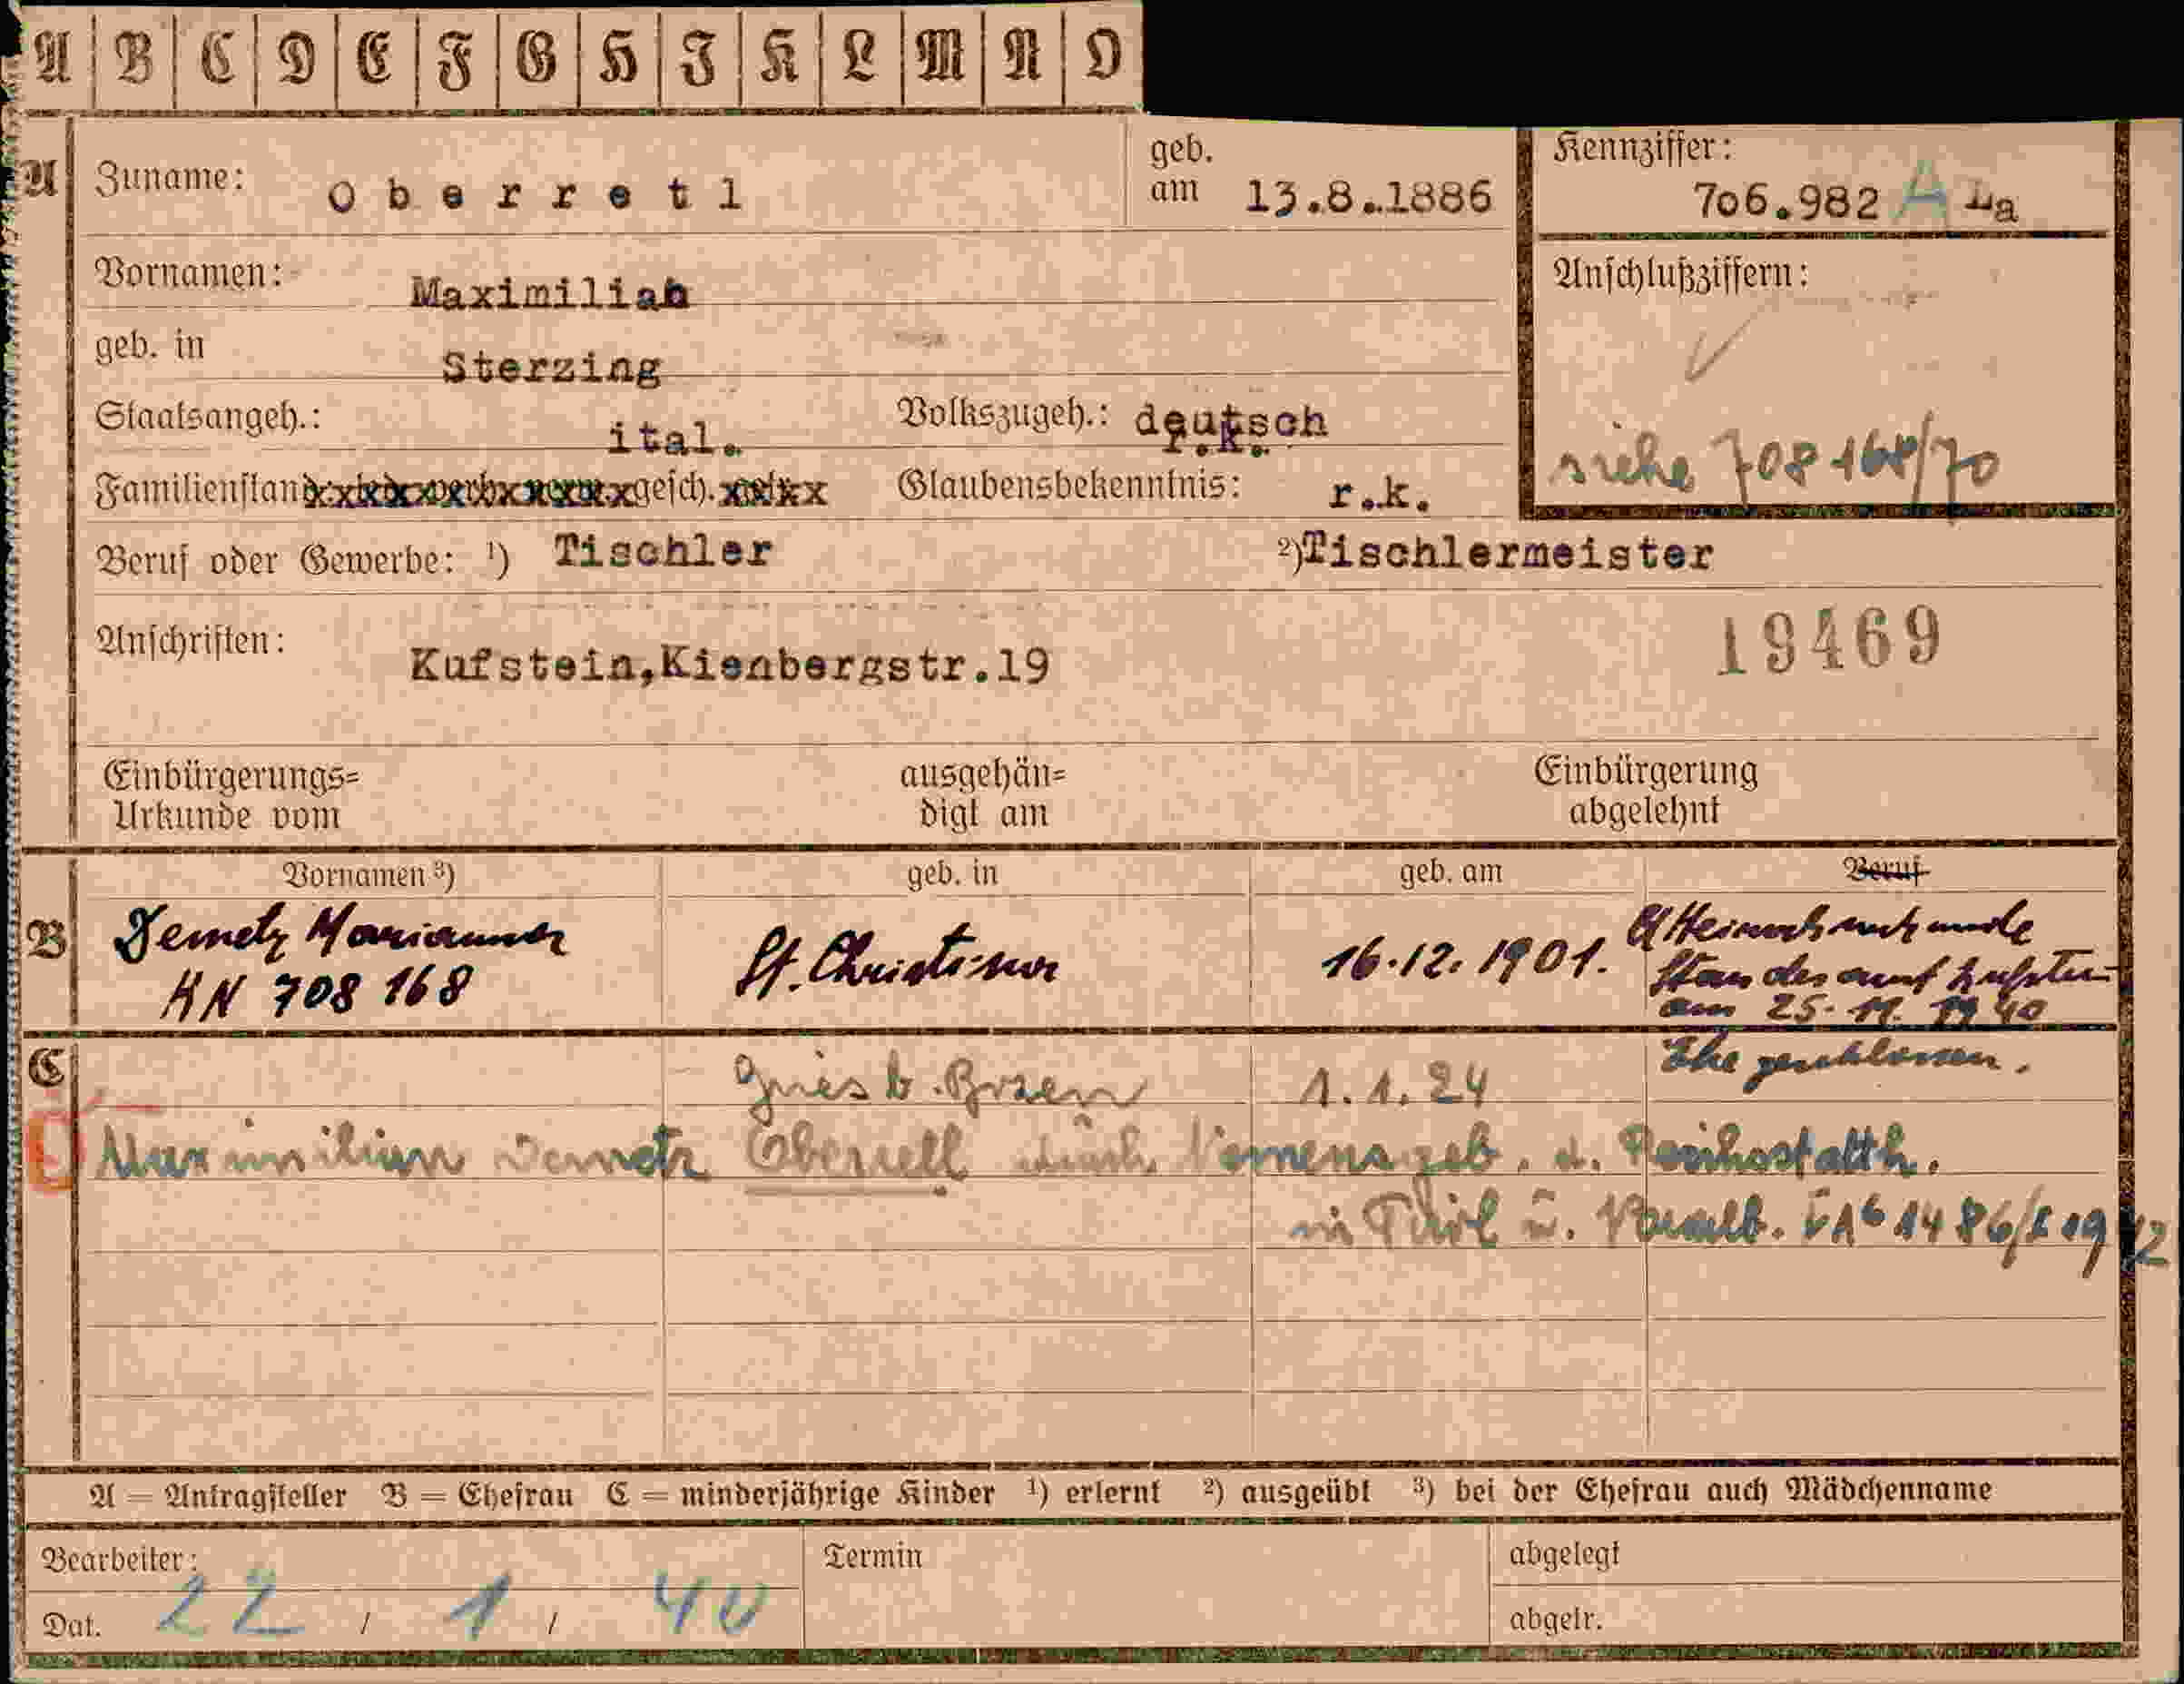 A B C D E F G H I K L M N O
A Zuname: Oberretl geb. am 13.8.1886 Kennziffer: 706.982 A La
Vornamen: Maximilian Anschlußziffern:
geb. in Sterzing
Staatsangeh.: ital. Volkszugeh.: deutsch
r.k.
siehe 708 168/70
Familienstand gesch. Glaubensbekenntnis: r.k.
Beruf oder Gewerbe: ¹) Tischler ²) Tischlermeister
19469
Anschriften: Kufstein,Kienbergstr.19
Einbürgerungs= ausgehän= Einbürgerung
Urkunde vom digt am abgelehnt
Vornamen ³) geb. in geb. am Beruf
B Demetz Marianna St. Christina 16.12.1901.
KN 708 168 Standesamt Kufstein
am 25. 11. 1940
C Ehe geschlossen.
Gries b. Bozen 1.1.24
C Maximilian Demetz Oberretl durch Namensgeb. d. Reichsstatth.
in Tirol u. Vorarlb.
A = Antragsteller B = Ehefrau C = minderjährige Kinder ¹) erlernt ²) ausgeübt ³) bei der Ehefrau auch Mädchenname
Bearbeiter: Termin abgelegt
Dat. 22 / 1 / 40 abgetr.